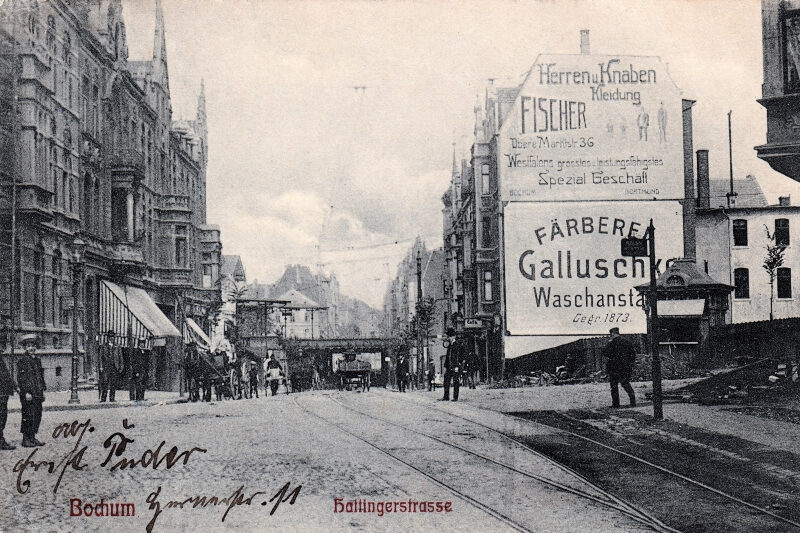 Herren u Knaben
Kleidung
FISCHER
Obere Marktstr 36
Westfalens grösstes u. leistungsfähigstes
Spezial Geschäft
BOCHUM DORTMUND
FÄRBEREI
Galluschke
Waschansta
Gegr. 1873.
Ernst Puder
Bochum
Hernerstr. 51
Hattingerstrasse